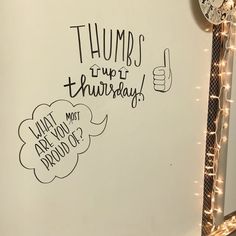 THUMBS
up
thursday!
WHAT
ARE YOU MOST
PROUD OF?